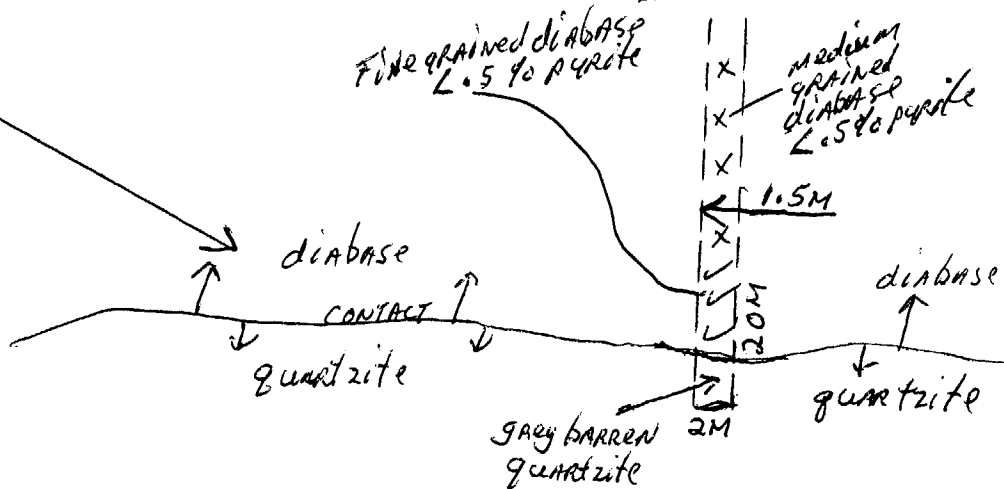 Fine grained diabase
<.5 % pyrite
medium
grained
diabase
<.5% pyrite
x
x
x
1.5M
x
diabase
diabase
CONTACT
20M
quartzite
quartzite
grey barren
quartzite
2M